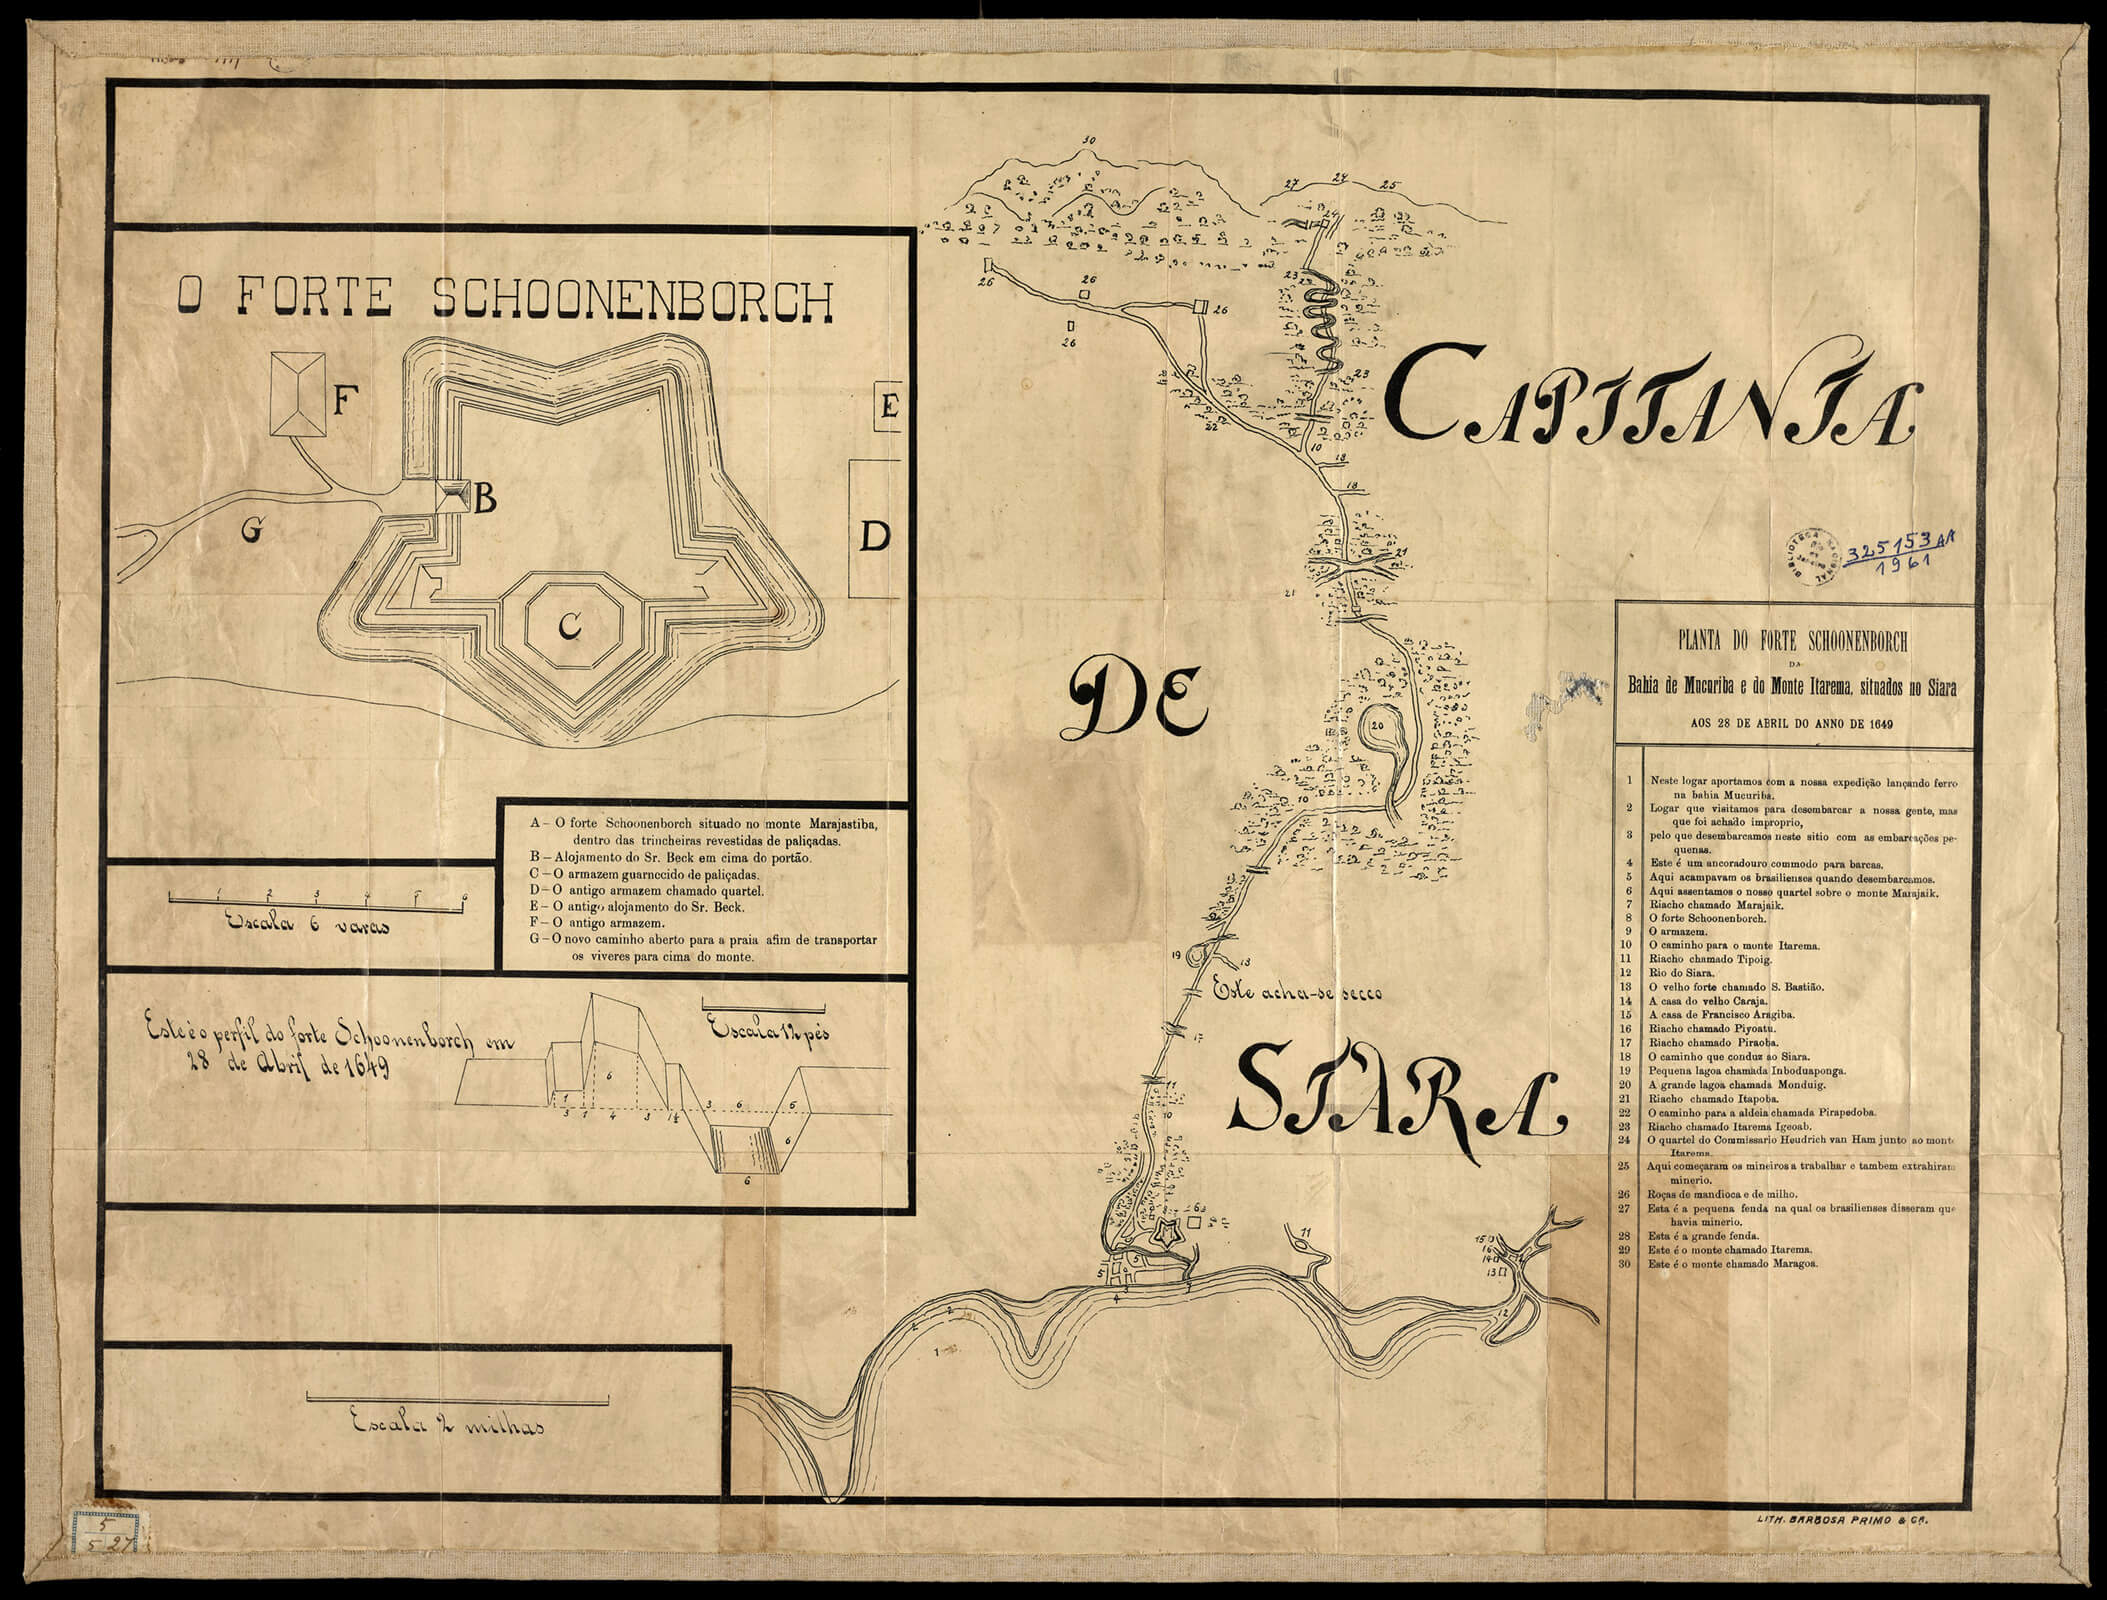 O FORTE SCHOONENBORCH
F
B
G
C
E
D
A – O forte Schoonenborch situado no monte Marajastiba,
dentro das trincheiras revestidas de paliçadas.
B – Alojamento do Sr. Beck em cima do portão.
C – O armazem guarnecido de paliçadas.
D – O antigo armazem chamado quartel.
E – O antigo alojamento do Sr. Beck.
F – O antigo armazem.
G – O novo caminho aberto para a praia afim de transportar
os viveres para cima do monte.
1 2 3 4 5 6
Escala 6 varas
Este é o perfil do forte Schoonenborch em
28 de Abril de 1649
Escala 12 pés
6
1
3 1 4 3 1½ 3 6 6
6
6
Escala 2 milhas
CAPITANIA
DE
SIARA
30
27 24 25
24
26
26
26
26
23
23
22
10
18
18
21
21
20
10
19
13
Este acha-se secco
17
11
10
6
11
5
5
4
3
7
2
2
1
15
16
14
13
12
BIBLIOTECA NACIONAL
325153 AA
1961
PLANTA DO FORTE SCHOONENBORCH
DA
Bahia de Mucuriba e do Monte Itarema, situados no Siara
AOS 28 DE ABRIL DO ANNO DE 1649
1 Neste logar aportamos com a nossa expedição lançando ferro
na bahia Mucuriba.
2 Logar que visitamos para desembarcar a nossa gente, mas
que foi achado improprio,
3 pelo que desembarcamos neste sitio com as embarcações pe-
quenas.
4 Este é um ancoradouro commodo para barcas.
5 Aqui acampavam os brasilienses quando desembarcamos.
6 Aqui assentamos o nosso quartel sobre o monte Marajaik.
7 Riacho chamado Marajaik.
8 O forte Schoonenborch.
9 O armazem.
10 O caminho para o monte Itarema.
11 Riacho chamado Tipoig.
12 Rio do Siara.
13 O velho forte chamado S. Bastião.
14 A casa do velho Caraja.
15 A casa de Francisco Aragiba.
16 Riacho chamado Piyoatu.
17 Riacho chamado Piraoba.
18 O caminho que conduz ao Siara.
19 Pequena lagoa chamada Inboduaponga.
20 A grande lagoa chamada Monduig.
21 Riacho chamado Itapoba.
22 O caminho para a aldeia chamada Pirapedoba.
23 Riacho chamado Itarema Igeoab.
24 O quartel do Commissario Heudrich van Ham junto ao monte
Itarema.
25 Aqui começaram os mineiros a trabalhar e tambem extrahiram
minerio.
26 Roças de mandioca e de milho.
27 Esta é a pequena fenda na qual os brasilienses disseram que
havia minerio.
28 Esta é a grande fenda.
29 Este é o monte chamado Itarema.
30 Este é o monte chamado Maragoa.
LITH. BARBOSA PRIMO & Ca.
5
5 27